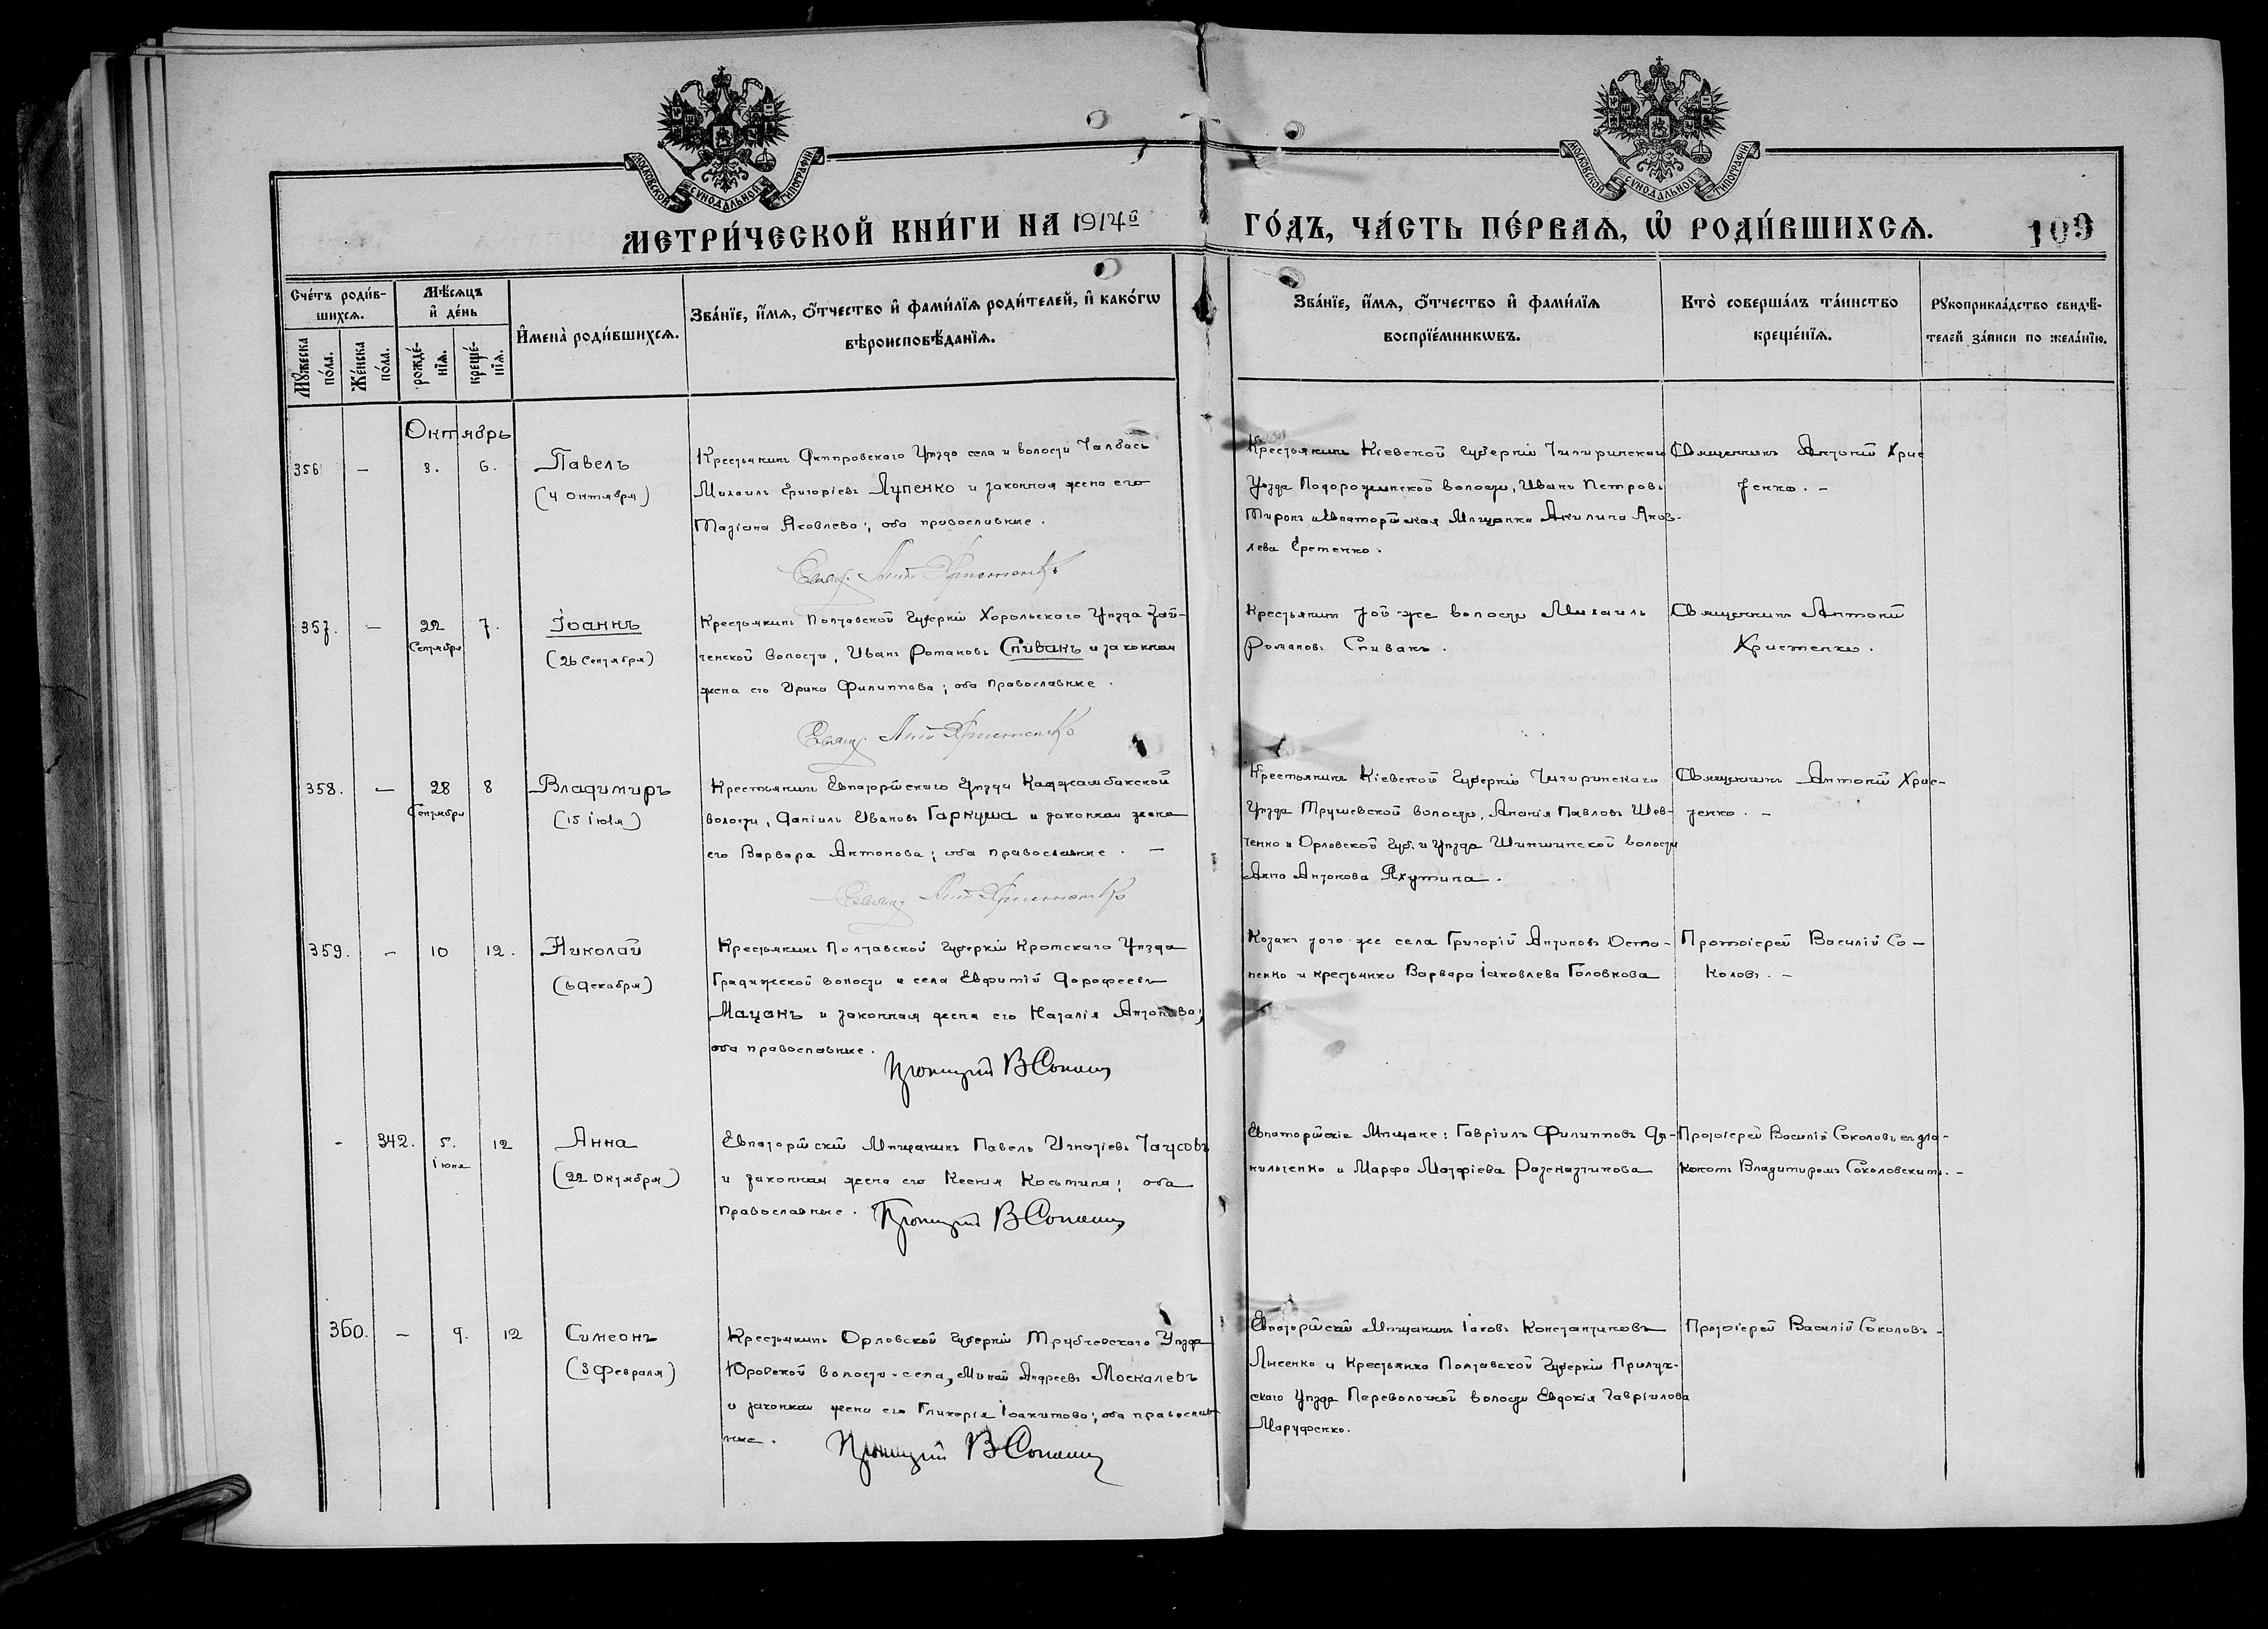 МОСКОВСКОЙ СѴНОДАЛЬНОЙ ТИПОГРАФІИ
МОСКОВСКОЙ СѴНОДАЛЬНОЙ ТИПОГРАФІИ
МЕТРИ́ЧЕСКОЙ КНИ́ГИ НА 1914й
ГО́ДЪ, ЧА́СТЬ ПЕ́РВАѦ, Ѡ҆ РОДИ́ВШИХСѦ.
109
Сче́тъ роди́в-
шихсѧ.
Мꙋ́жеска
по́ла.
Же́нска
по́ла.
Мѣ́сѧцъ
и҆ де́нь
рожде́-
нїѧ.
креще́-
нїѧ.
И҆мена̀ роди́вшихсѧ.
Зва́нїе, и҆́мѧ, ѻ҆́тчество и҆ фами́лїѧ роди́телей, и҆ како́гѡ
вѣроисповѣ́данїѧ.
Зва́нїе, и҆́мѧ, ѻ҆́тчество и҆ фами́лїѧ
воспрїе́мникѡвъ.
Кто̀ соверша́лъ та́инство
креще́нїѧ.
Рꙋкоприкла́дство свидѣ́-
телей за́писи по жела́нїю.
Октябрь
356 – 3. 6. Павелъ
(4 Октября)
Крестьянинъ Днѣпровскаго Уѣзда села и волости Чалбасъ
Михаилъ Григоріевъ Лупенко и законная жена его
Татіана Яковлева; оба православные.
Свящ. Ант Христенко
Крестьянинъ Кіевской Губерніи Чигиринскаго
Уѣзда Подорожнской волости, Иванъ Петровъ
Миронъ и Евпаторійская Мѣщанка Акилина Яков-
лева Еременко.
Священникъ Антоній Хрис
тенко. –
357. – 22 7. Іоаннъ
Сентября
(26 Сентября)
Крестьянинъ Полтавской Губерніи Хорольскаго Уѣзда Зай-
ченской волости, Иванъ Романовъ Спивакъ и законная
жена его Ирина Филиппова; оба Православные.
Свящ Ант Христенко
Крестьянинъ той же волости Михаилъ
Романовъ Спивакъ.
Священникъ Антоній
Христенко.
358. – 28 8 Владимиръ
Сентября
(15 Іюля)
Крестьянинъ Евпаторійскаго Уѣзда Каджамбакской
волости, Даніилъ Ивановъ Гаркуша и законная жена
его Варвара Антонова; оба православные. –
Свящ Ант Христенко
Крестьянинъ Кіевской Губерніи Чигиринскаго
Уѣзда Трушевской волости, Ананія Павловъ Шев-
ченко и Орловской Губ. и Уѣзда волости
Анна Антонова Яхутина.
Священникъ Антоній Хрис-
тенко. –
359. – 10 12. Николай
(6 Декабря)
Крестьянинъ Полтавской Губерніи Уѣзда
Градижской волости и села Евфимій Дорофеевъ
Мацакъ и законная жена его Наталія Антонова;
оба православные.
Протоіерей В Соколовъ
Козакъ того-же села Григорій Антоновъ Оста-
пенко и крестьянка Варвара Іаковлева Головкова
Протоіерей Василій Со-
коловъ. –
- 342. 5. 12 Анна
Іюня
(22 Октября)
Евпаторійскій Мѣщанинъ Павелъ Игнатіевъ Чаусовъ
и законная жена его Ксенія Косьмина; оба
Православные.
Протоіерей В Соколовъ
Евпаторійскіе Мѣщане: Гавріилъ Филипповъ Да-
нильченко и Марфа Матфіева Разсказчикова
Протоіерей Василій Соколовъ съ діа-
кономъ Владимиромъ Соколовскимъ. –
360. – 9. 12 Симеонъ
(3 Февраля)
Крестьянинъ Орловской Губерніи Трубчевскаго Уѣзда
Юровской волости-села, Минай Андреевъ Москалевъ
и законная жена его Гликерія Іоакимова; оба православ-
ные.
Протоіерей В Соколовъ
Евпаторійскій Мѣщанинъ Іаковъ Константиновъ
Лысенко и Крестьянка Полтавской Губерніи Прилук-
скаго Уѣзда Переволочной волости Евдокія Гавріилова
Марусенко.
Протоіерей Василій Соколовъ-